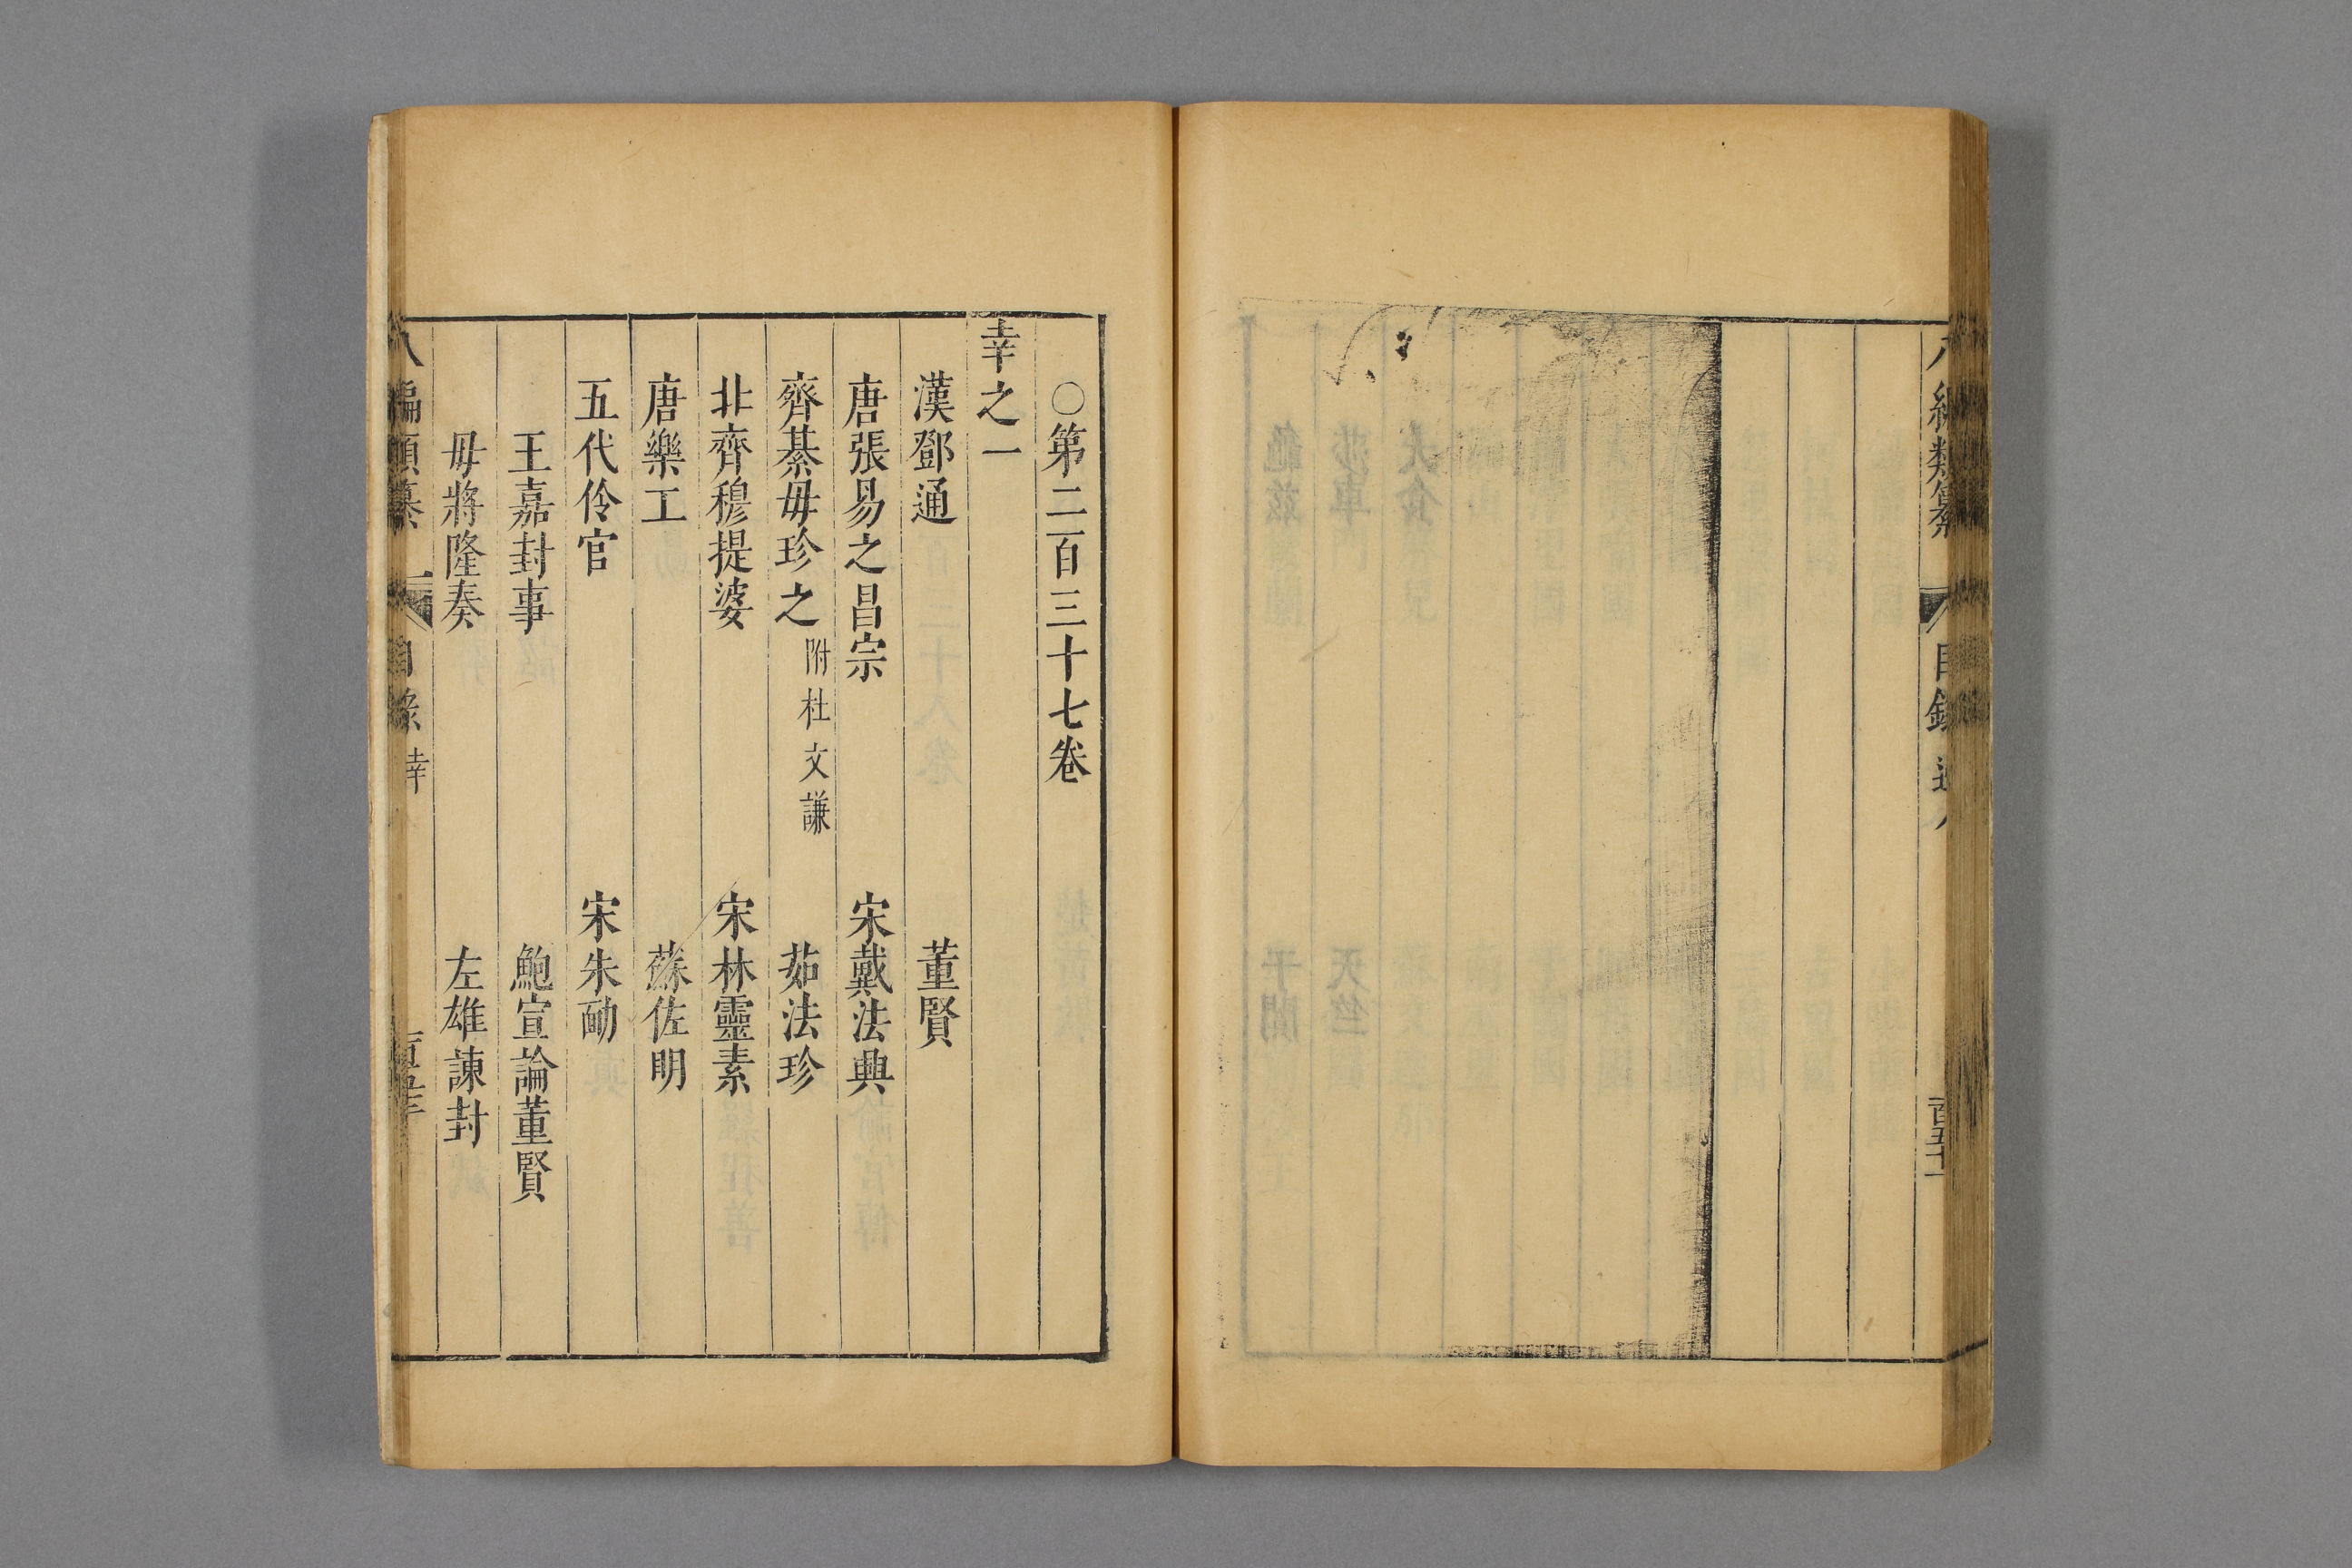 八編類纂 目錄
○第二百三十七卷
幸之一
漢鄧通 董賢
唐張易之昌宗 宋戴法興
齊綦毋珍之 附杜文謙 茹法珍
北齊穆提婆 宋林靈素
唐樂工 蘇佐明
五代伶官 宋朱勔
王嘉封事 鮑宣論董賢
毋將隆奏 左雄諫封
八編類纂 目錄 幸